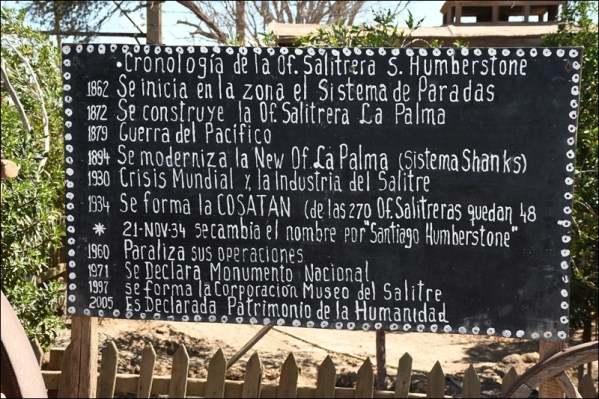 •Cronología de la Of. Salitrera S. Humberstone
1862 Se inicia en la zona el Sistema de Paradas
1872 Se construye la Of. Salitrera La Palma
1879 Guerra del Pacífico
1894 Se moderniza la New Of. La Palma (Sistema Shanks)
1930 Crisis Mundial y la Industria del Salitre
1934 Se forma la COSATAN (de las 270 Of. Salitreras quedan 48
* 21-NOV-34 se cambia el nombre por "Santiago Humberstone"
1960 Paraliza sus operaciones
1971 Se Declara Monumento Nacional
1997 se forma la Corporación Museo del Salitre
2005 Es Declarada Patrimonio de la Humanidad